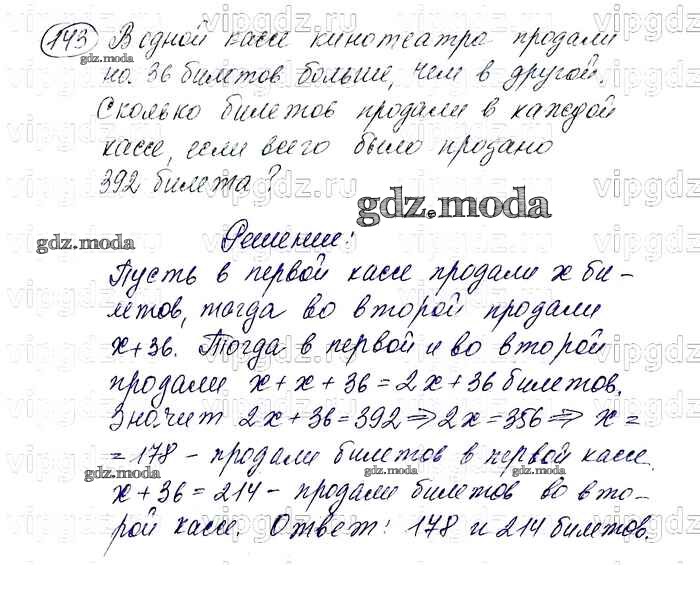 143 В одной кассе кинотеатра продали
на 36 билетов больше, чем в другой.
Сколько билетов продали в каждой
кассе, если всего было продано
392 билета?
gdz.moda
gdz.moda
gdz.moda
Решение:
Пусть в первой кассе продали x би-
летов, тогда во второй продали
x+36. Тогда в первой и во второй
продали x+x+36=2x+36 билетов.
Значит 2x+36=392⇒2x=356⇒x=
=178 - продали билетов в первой кассе.
gdz.moda
gdz.moda
gdz.moda
x+36=214 - продали билетов во вто-
рой кассе. Ответ: 178 и 214 билетов.